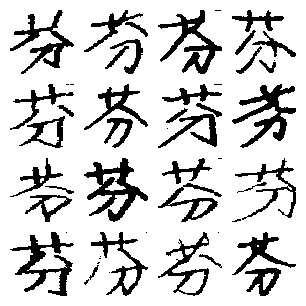 芬芬芬芬
芬芬芬芬
芬芬芬芬
芬芬芬芬